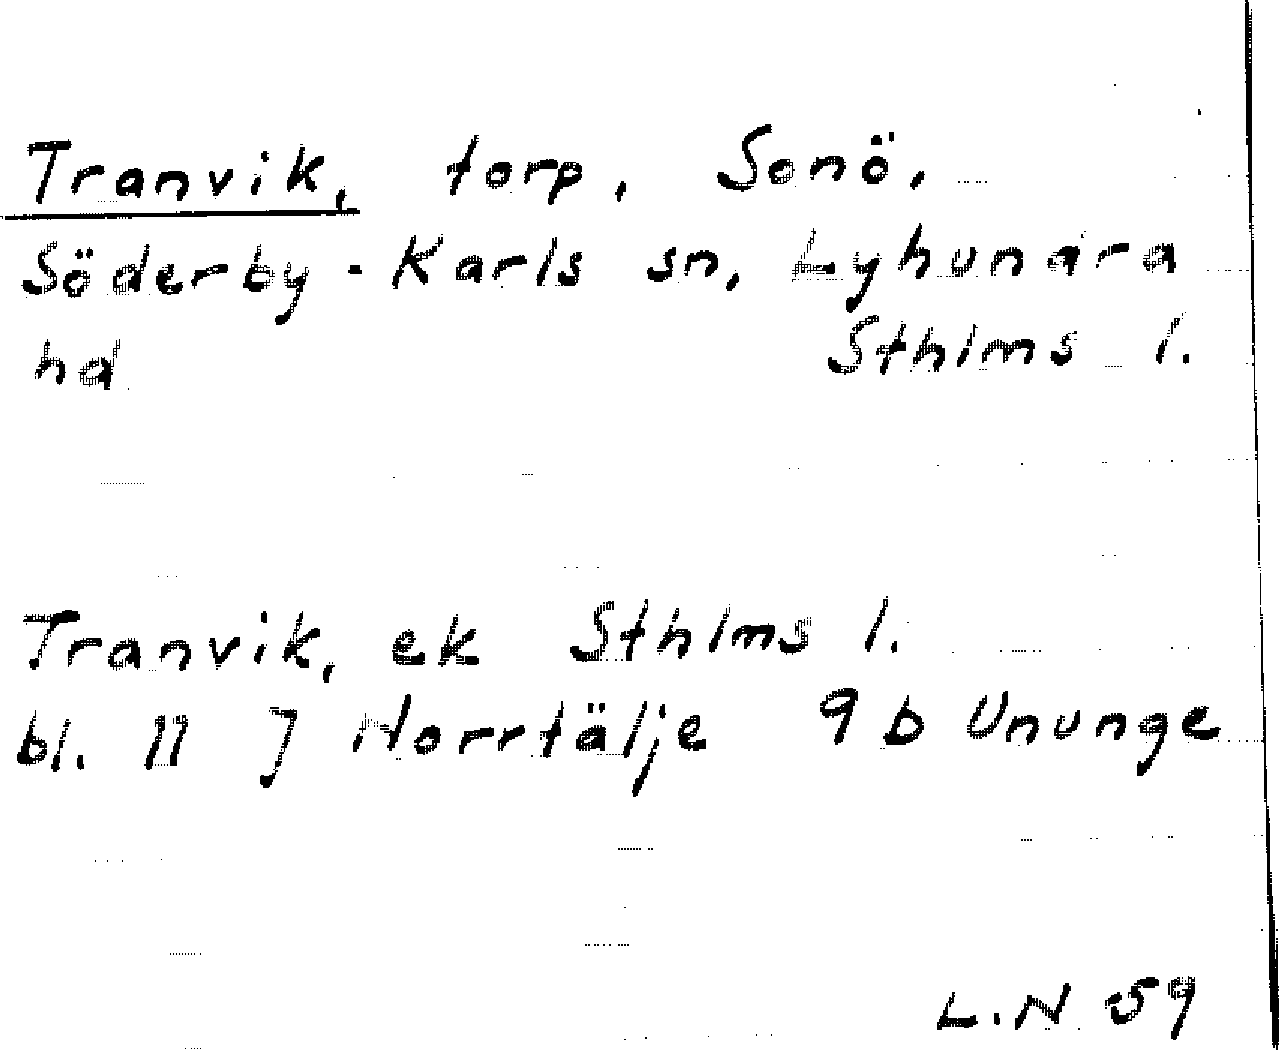 Tranvik, torp, Sonö,
Söderby-Karls sn, Lyhundra
hd Sthlms l.
Tranvik, ek Sthlms l.
bl. 11 J Norrtälje 9b Ununge
L.N 59